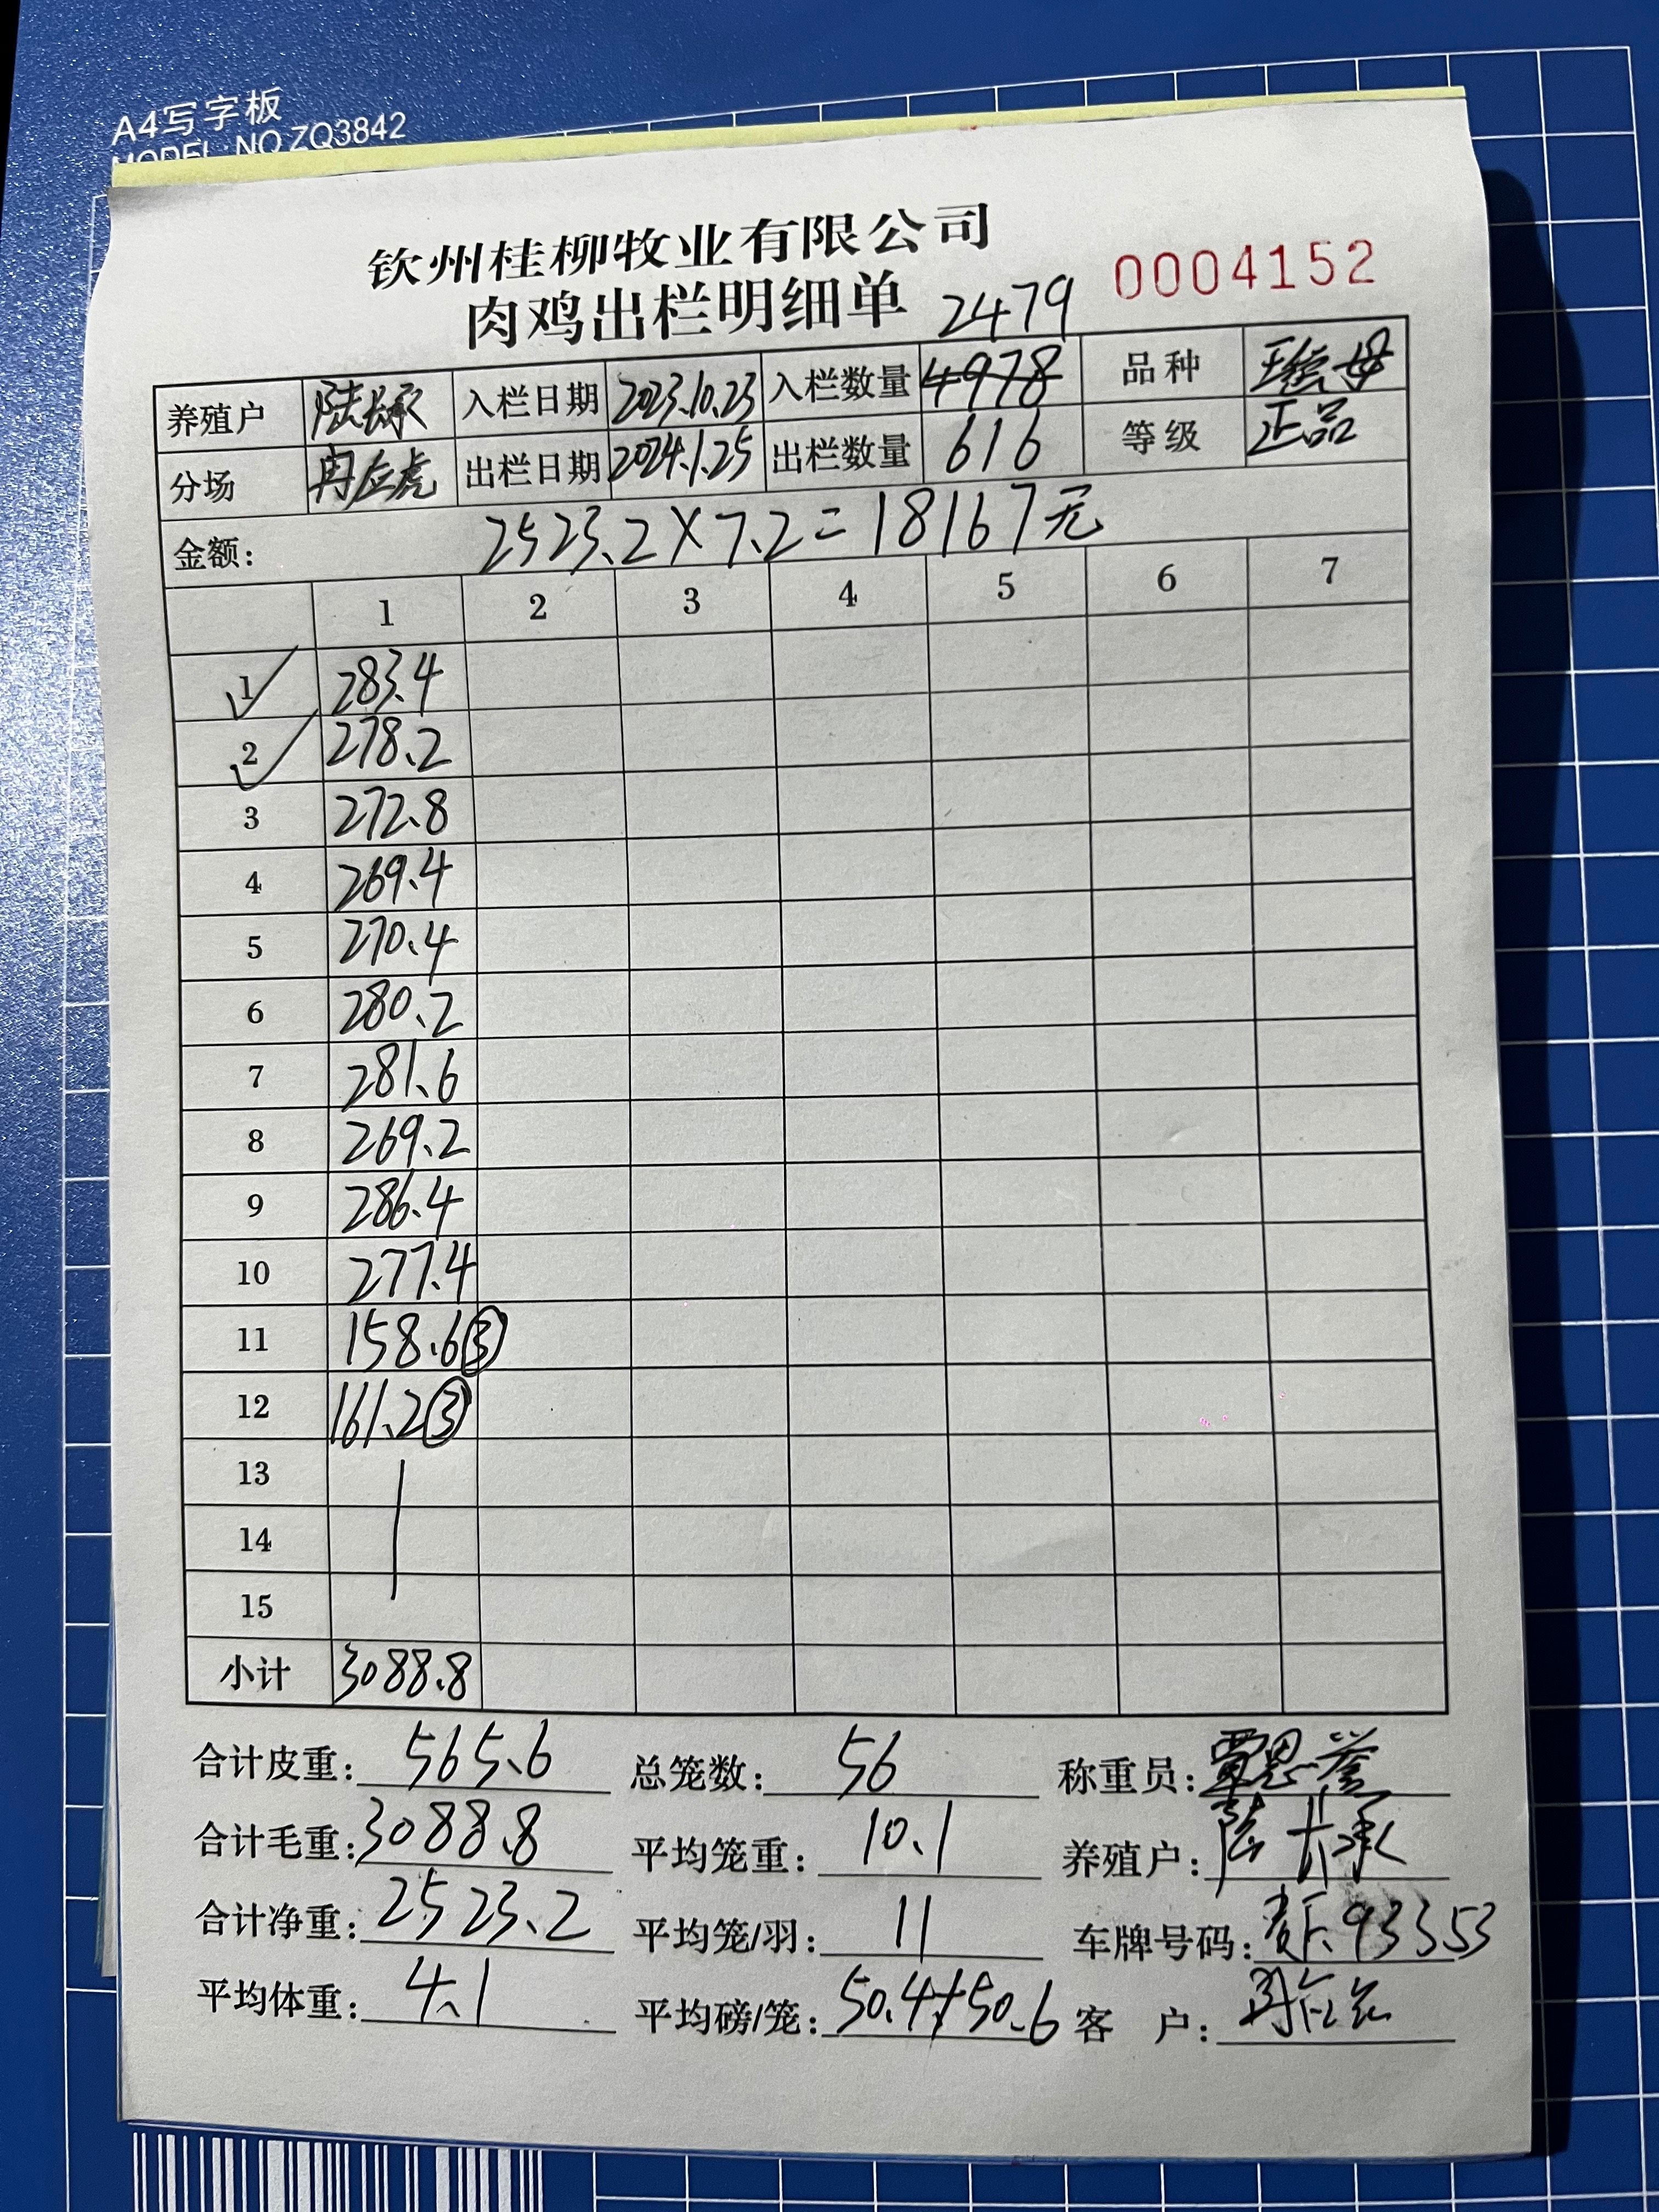 A4写字板
MODEL:NO.ZQ3842
钦州桂柳牧业有限公司
肉鸡出栏明细单 2479 0004152
养殖户 陆长承 入栏日期 2023.10.23 入栏数量 4978 品种 母
分场 冉应虎 出栏日期 2024.1.25 出栏数量 616 等级 正品
金额: 2523.2×7.2=18167元
1 2 3 4 5 6 7
1 283.4
2 278.2
3 272.8
4 269.4
5 270.4
6 280.2
7 281.6
8 269.2
9 286.4
10 277.4
11 158.6③
12 161.2③
13
14
15
小计 3088.8
合计皮重: 565.6 总笼数: 56 称重员: 覃思誉
合计毛重: 3088.8 平均笼重: 10.1 养殖户: 陆长承
合计净重: 2523.2 平均笼/羽: 11 车牌号码: 93353
平均体重: 4.1 平均磅/笼: 50.4+50.6 客户: